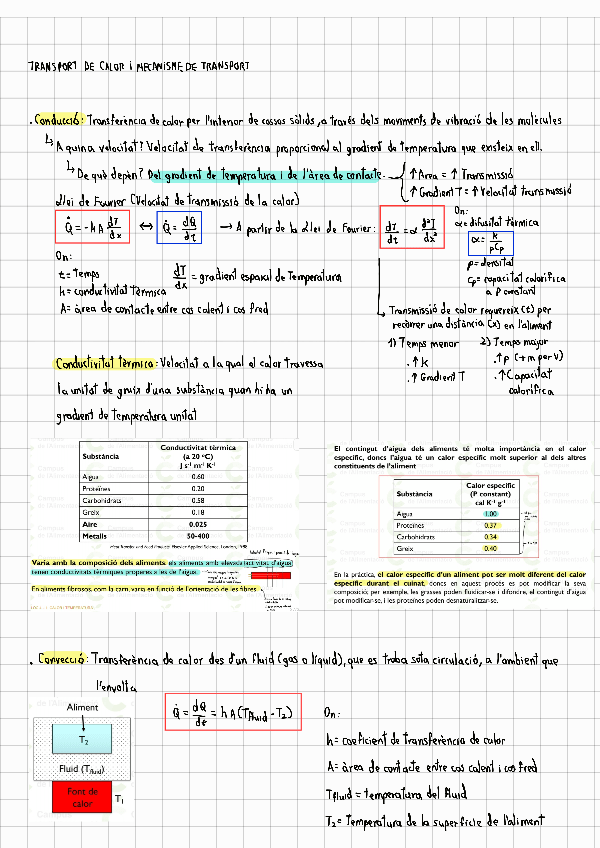 TRANSPORT DE CALOR i MECANISME DE TRANSPORT
. Conducció: Transferència de calor per l'interior de cossos sòlids, a través dels moviments de vibració de les molècules
↳ A quina velocitat? Velocitat de transferència proporcional al gradient de temperatura que existeix en ell.
↳ De què depèn? Del gradient de temperatura i de l'àrea de contacte.
↑ Area = ↑ Transmissió
↑ Gradient T = ↑ Velocitat transmissió
Llei de Fourier (Velocitat de transmissió de la calor)
Q̇ = -kA dT/dx ↔ Q̇ = dQ/dt → A partir de la Llei de Fourier: dT/dt = α d²T/dx²
On:
α = difusitat tèrmica
α = k/ρCp
ρ = densitat
Cp = capacitat calorífica a P constant
On:
t = Temps
k = conductivitat tèrmica
A = àrea de contacte entre cos calent i cos fred
dT/dx = gradient espaial de Temperatura
↳ Transmissió de calor requereix (t) per
recórrer una distància (x) en l'aliment
1) Temps menor
. ↑ k
. ↑ Gradient T
2) Temps major
. ↑ ρ (+m per V)
. ↑ Capacitat
calorífica
Conductivitat tèrmica: Velocitat a la qual el calor travessa
la unitat de gruix d'una substància quan hi ha un
gradient de temperatura unitat
Substància
Conductivitat tèrmica
(a 20 ºC)
J s-1 m-1 K-1
Aigua 0.60
Proteïnes 0.20
Carbohidrats 0.58
Greix 0.18
Aire 0.025
Metalls 50-400
Varia amb la composició dels aliments: els aliments amb elevada (activitat) d'aigua
tenen conductivitats tèrmiques properes a les de l'aigua.
En aliments fibrosos, com la carn, varia en funció de l'orientació de les fibres
El contingut d'aigua dels aliments té molta importància en el calor
específic, doncs l'aigua té un calor específic molt superior al dels altres
constituents de l'aliment
Substància
Calor específic
(P constant)
cal K-1 g-1
Aigua 1.00
Proteïnes 0.37
Carbohidrats 0.34
Greix 0.40
En la pràctica, el calor específic d'un aliment pot ser molt diferent del calor
específic durant el cuinat, doncs en aquest procés es pot modificar la seva
composició; per exemple, les grasses poden fluidicar-se i difondre, el contingut d'aigua
pot modificar-se, i les proteïnes poden desnaturalitzar-se.
. Convecció: Transferència de calor des d'un fluid (gas o líquid), que es troba sota circulació, a l'ambient que
l'envolta
Aliment
T2
Fluid (Tfluid)
Font de
calor
T1
Q̇ = dQ/dt = hA(Tfluid - T2)
On:
h = coeficient de transferència de calor
A = àrea de contacte entre cos calent i cos fred
Tfluid = temperatura del fluid
T2 = Temperatura de la superfície de l'aliment